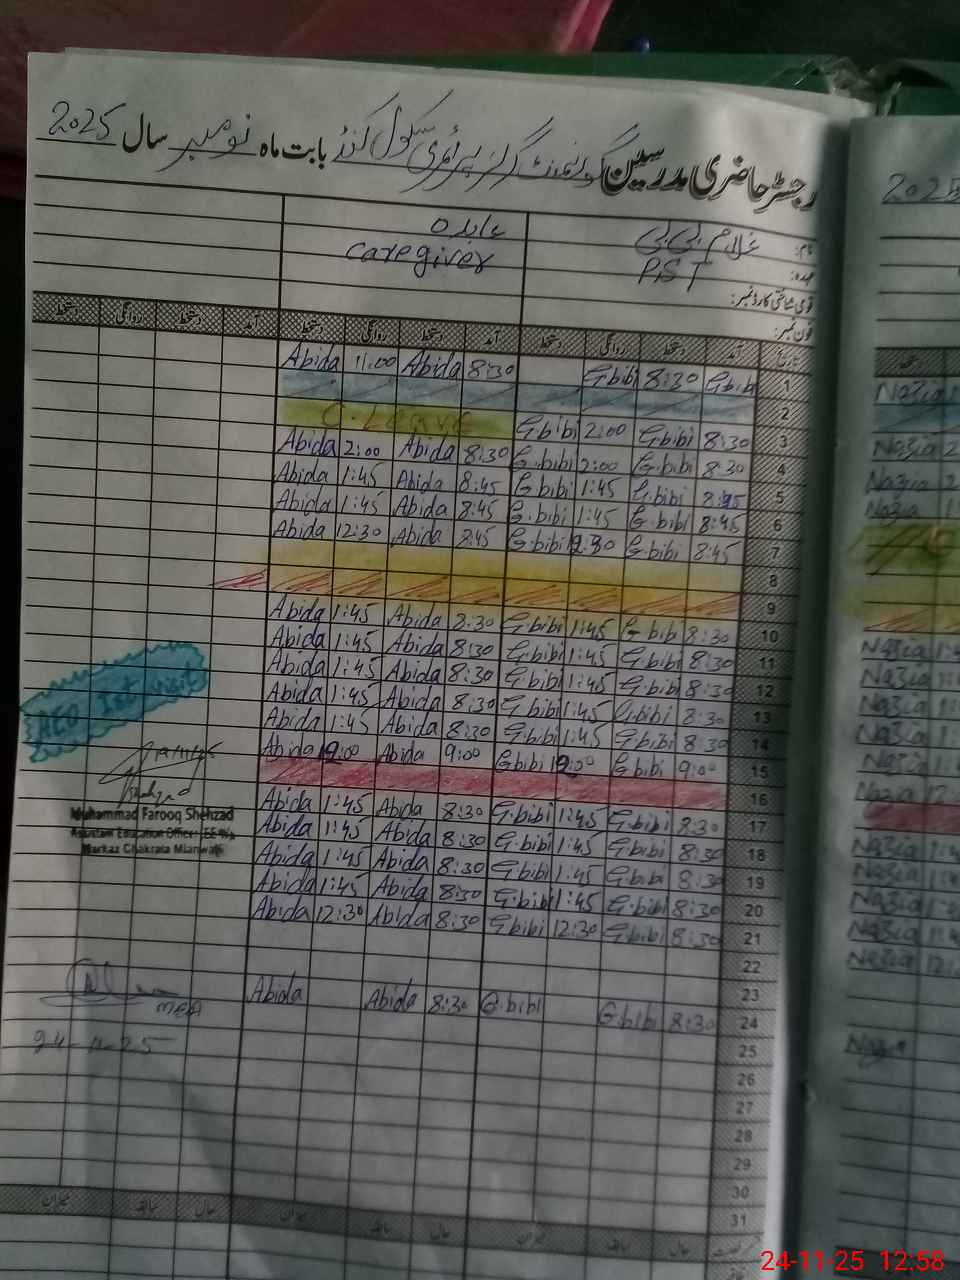 رجسٹر حاضری مدرسین گورنمنٹ گرلز پرائمری سکول بابت ماہ نومبر سال 2025
نام: غلام بی بی عابدہ
عہدہ: PST caregiver
قومی شناختی کارڈ نمبر:
فون نمبر:
تاریخ آمد دستخط روانگی دستخط آمد دستخط روانگی دستخط آمد دستخط روانگی دستخط
Abida 11:00 Abida 8:30 G.bibi 8:30 G.bib 1
2
C. Leave G.bibi 2:00 G.bibi 8:30 3
Abida 2:00 Abida 8:30 G.bibi 2:00 G.bibi 8:30 4
Abida 1:45 Abida 8:45 G.bibi 1:45 G.bibi 8:45 5
Abida 1:45 Abida 8:45 G.bibi 1:45 G.bibi 8:45 6
Abida 12:30 Abida 8:45 G.bibi 12:30 G.bibi 8:45 7
8
9
Abida 1:45 Abida 8:30 G.bibi 1:45 G.bib 8:30 10
Abida 1:45 Abida 8:30 G.bibi 1:45 G.bibi 8:30 11
Abida 1:45 Abida 8:30 G.bibi 1:45 G.bibi 8:30 12
Abida 1:45 Abida 8:30 G.bibi 1:45 G.bibi 8:30 13
Abida 1:45 Abida 8:30 G.bibi 1:45 G.bibi 8:30 14
Abida 12:00 Abida 9:00 G.bibi 12:00 G.bibi 9:00 15
16
Abida 1:45 Abida 8:30 G.bibi 1:45 G.bibi 8:30 17
Abida 1:45 Abida 8:30 G.bibi 1:45 G.bibi 8:30 18
Abida 1:45 Abida 8:30 G.bibi 1:45 G.bibi 8:30 19
Abida 1:45 Abida 8:30 G.bibi 1:45 G.bibi 8:30 20
Abida 12:30 Abida 8:30 G.bibi 12:30 G.bibi 8:30 21
22
23
Abida Abida 8:30 G.bibi G.bibi 8:30 24
25
26
27
28
29
30
31
میزان سابقہ حال میزان سابقہ حال میزان سابقہ حال
AEO Ist visit
19/11/25
Shahzad
Muhammad Farooq Shehzad
Assistant Education Officer
Markaz Chakrala Mianwali
MEA
24-11-25
2025
Nazia
Nazia 2
Nazia 2
Nazia 1
Nazia 1:4
Nazia 1:
Nazia 1:
Nazia 1:
Nazia 1:
Nazia 12
Nazia 1:4
Nazia 1:4
Nazia 1:4
Nazia 1:4
Nazia 12:
Nazia
24-11-25 12:58